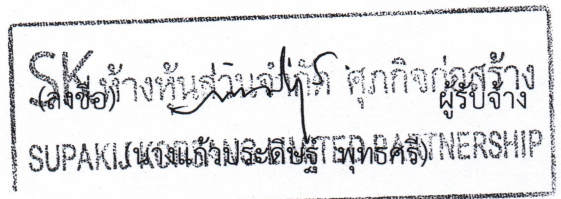 SK ห้างหุ้นส่วนจำกัด ศุภกิจก่อสร้าง
(ลงชื่อ) ผู้รับจ้าง
SUPAKIJ LIMITED PARTNERSHIP
(นางแก้วประดิษฐ์ พุทธศรี)